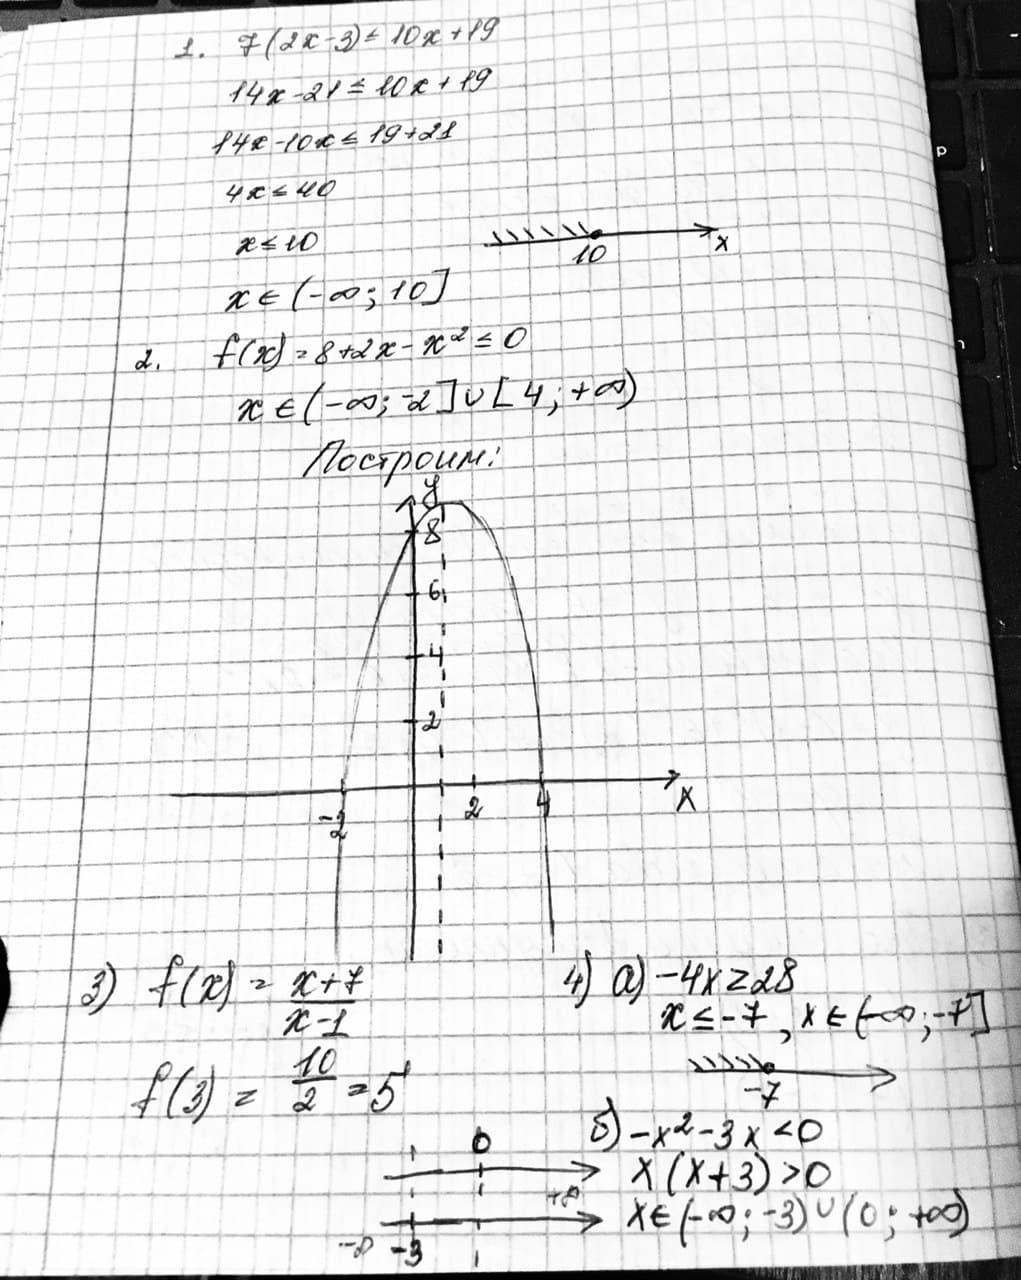 1. 7(2x-3) ≤ 10x+19
14x-21 ≤ 10x+19
14x-10x ≤ 19+21
4x ≤ 40
x ≤ 10
10 x
x ∈ (-∞; 10]
2. f(x) = 8+2x-x² ≤ 0
x ∈ (-∞; -2] ∪ [4; +∞)
Построим:
y
8
6
4
2
-2 2 4 x
3) f(x) = (x+7)/(x-1)
f(3) = 10/2 = 5
4) а) -4x ≥ 28
x ≤ -7, x ∈ (-∞; -7]
-7
б) -x²-3x < 0
x(x+3) > 0
x ∈ (-∞; -3) ∪ (0; +∞)
0
+∞
-∞ -3